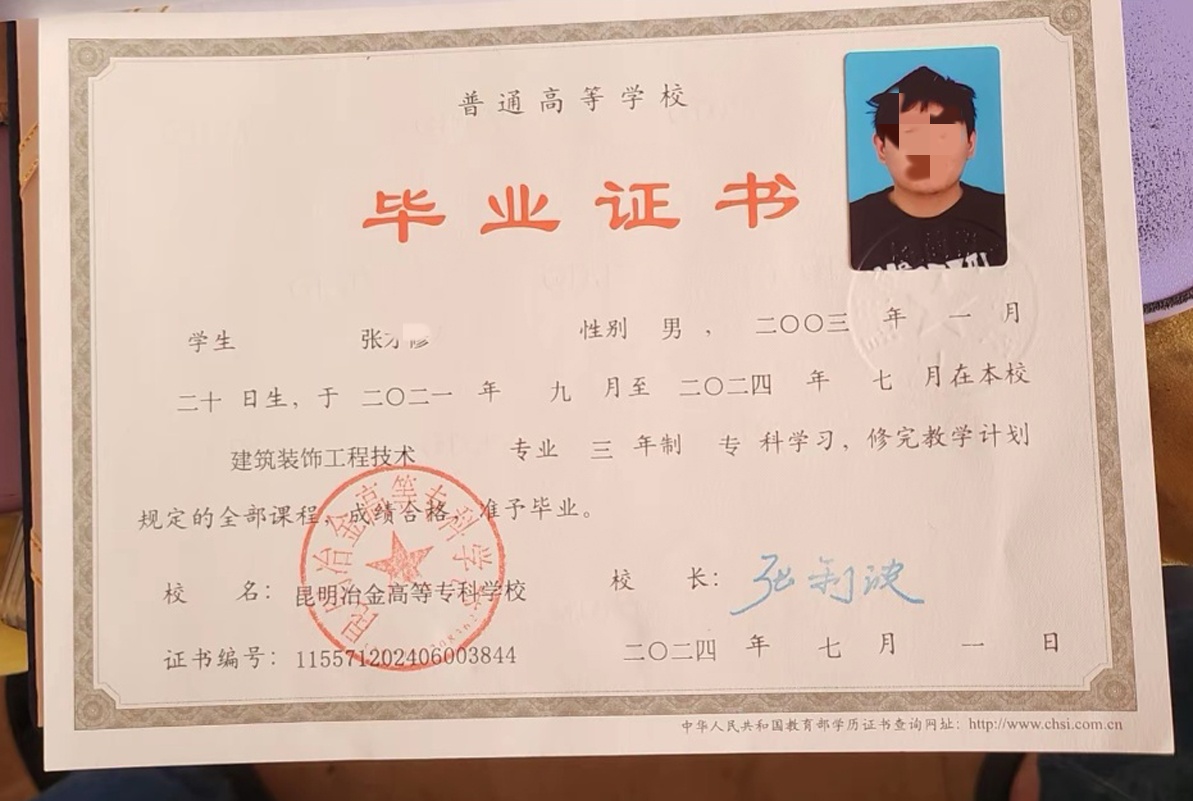 普通高等学校
毕业证书
学生 张 性别 男 ， 二〇〇三 年 一 月
二十 日生，于 二〇二一 年 九 月至 二〇二四 年 七 月在本校
建筑装饰工程技术 专业 三 年制 专 科学习，修完教学计划
规定的全部课程，成绩合格，准予毕业。
校 名：昆明冶金高等专科学校 校 长：
昆明冶金高等专科学校
证书编号：115571202406003844 二〇二四 年 七 月 一 日
中华人民共和国教育部学历证书查询网址：http://www.chsi.com.cn